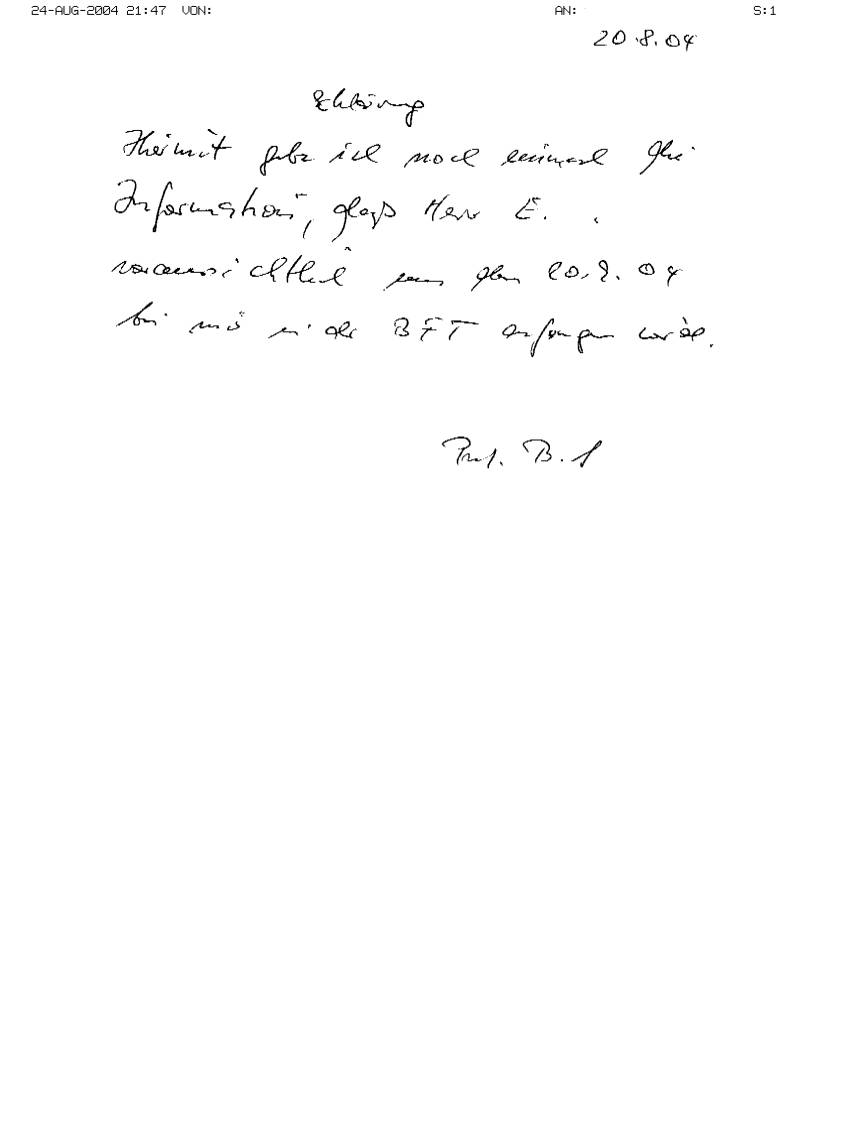 24-AUG-2004 21:47 VON: AN: S:1
20.8.04
Erklärung
Hiermit gebe ich noch einmal die
Information, daß Herr E.
voraussichtlich den
bei uns in der BFT anfangen wird.
Prof. B.